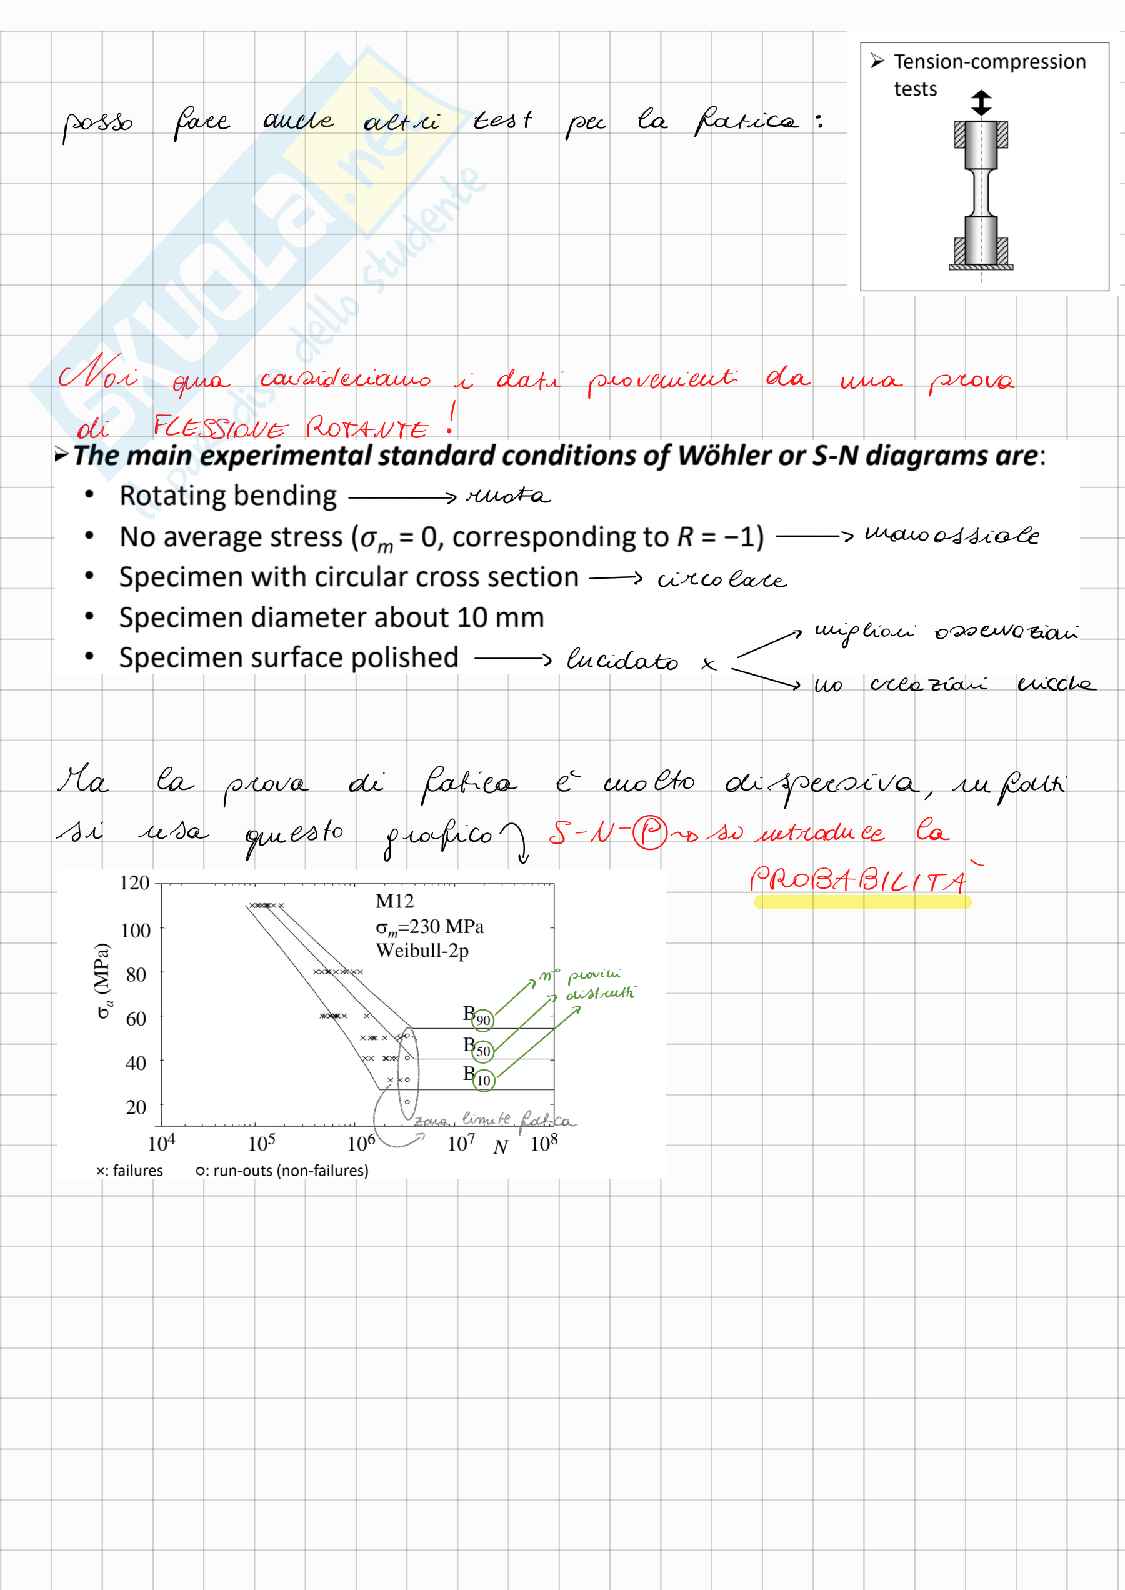 ➢ Tension-compression
tests
posso fare anche altri test per la fatica:
SKUOLA.net
dello studente
Noi qua consideriamo i dati provenienti da una prova
di FLESSIONE ROTANTE!
➢ The main experimental standard conditions of Wöhler or S-N diagrams are:
• Rotating bending → ruota
• No average stress (σm = 0, corresponding to R = −1) → monoassiale
• Specimen with circular cross section → circolare
• Specimen diameter about 10 mm
• Specimen surface polished → lucidato x
migliori osservazioni
no creazioni cricche
Ma la prova di fatica è molto dispersiva, infatti
si usa questo grafico S-N-P → si introduce la
PROBABILITÀ
120
100
80
60
40
20
σa (MPa)
M12
σm=230 MPa
Weibull-2p
n° provini
distrutti
B90
B50
B10
zona limite fatica
10⁴ 10⁵ 10⁶ 10⁷ N 10⁸
×: failures o: run-outs (non-failures)